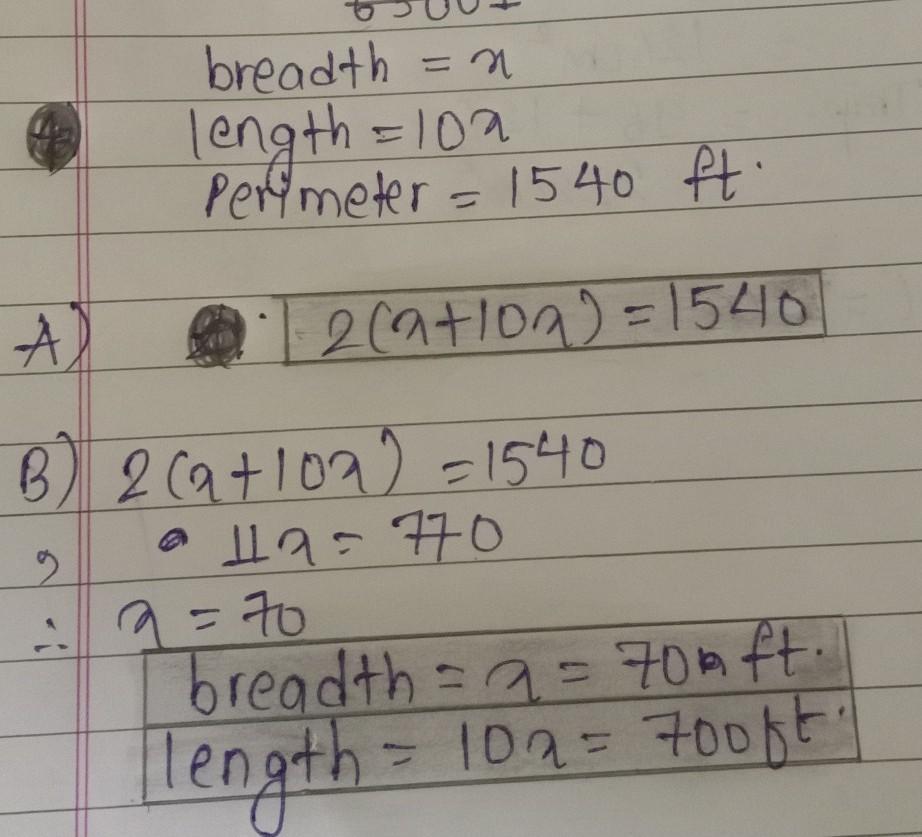 breadth = x
length = 10x
Perimeter = 1540 ft.
A) 2(x+10x) = 1540
B) 2(x+10x) = 1540
, 11x = 770
∴ x = 70
breadth = x = 70 ft.
length = 10x = 700ft.